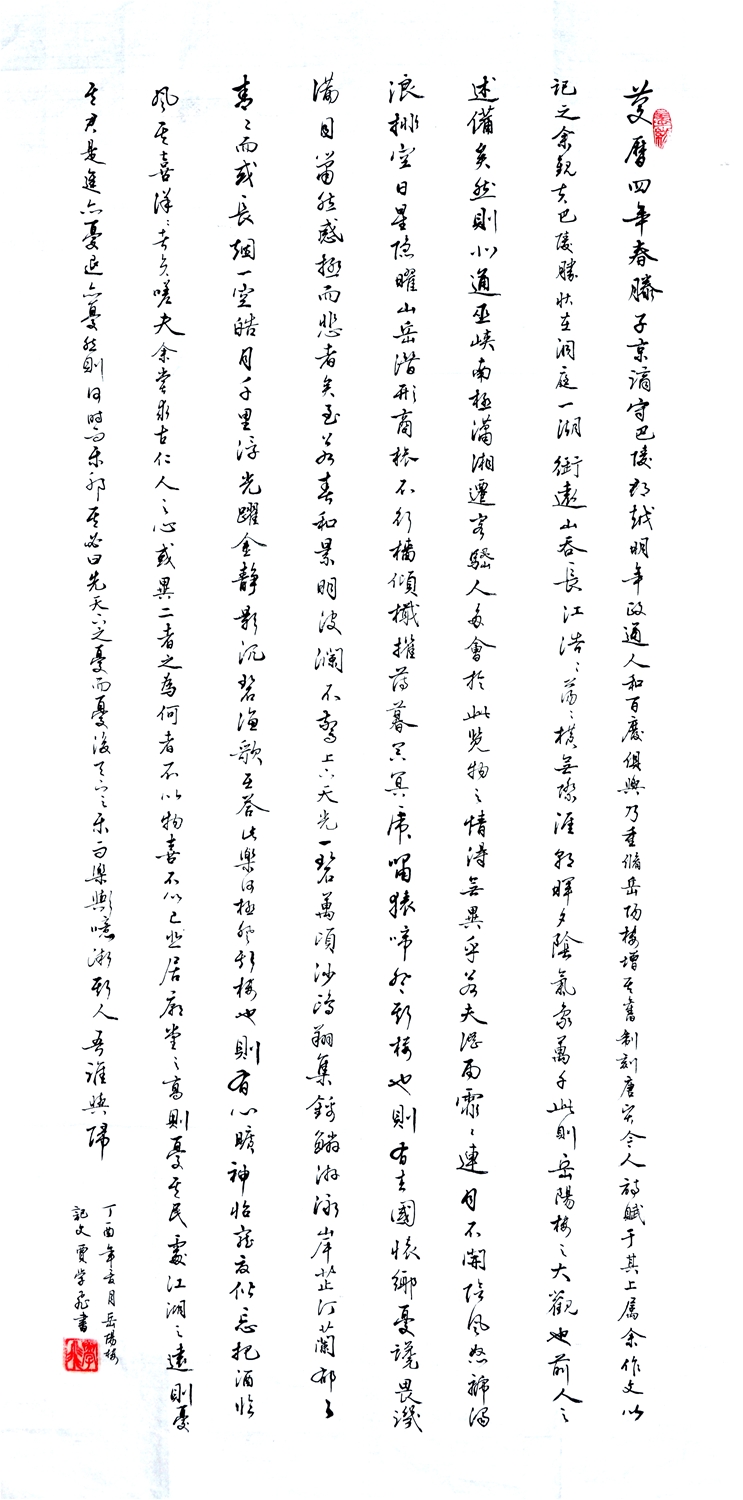 慶曆四年春滕子京謫守巴陵郡越明年政通人和百廢俱興乃重脩岳陽樓增其舊制刻唐賢今人詩賦于其上屬余作文以
記之余觀夫巴陵勝狀在洞庭一湖銜遠山吞長江浩〻蕩〻橫無際涯朝暉夕陰氣象萬千此則岳陽樓之大觀也前人之
述備矣然則北通巫峽南極瀟湘遷客騷人多會於此覽物之情得無異乎若夫淫雨霏〻連月不開陰風怒號濁
浪排空日星隱曜山岳潛形商旅不行檣傾檝摧薄暮冥冥虎嘯猿啼登斯樓也則有去國懷鄉憂讒畏譏
滿目蕭然感極而悲者矣至若春和景明波瀾不驚上下天光一碧萬頃沙鷗翔集錦鱗游泳岸芷汀蘭郁〻
青〻而或長烟一空皓月千里浮光躍金靜影沉碧漁歌互答此樂何極登斯樓也則有心曠神怡寵辱偕忘把酒臨
風其喜洋〻者矣嗟夫余嘗求古仁人之心或異二者之為何者不以物喜不以己悲居廟堂之高則憂其民處江湖之遠則憂
其君是進亦憂退亦憂然則何時而樂耶其必曰先天下之憂而憂後天下之樂而樂歟噫微斯人吾誰與歸
丁酉年 月岳陽樓
記文賈學 書